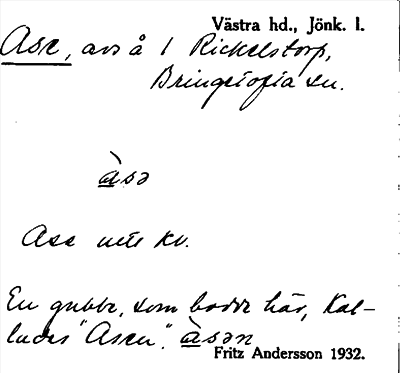 Västra hd., Jönk. l.
Ase, avs å 1 Rickelstorp,
Bringetofta sn.
àsə
Ase utt kv.
En gubbe, som bodde här, kal-
lades "Asen". àsən
Fritz Andersson 1932.